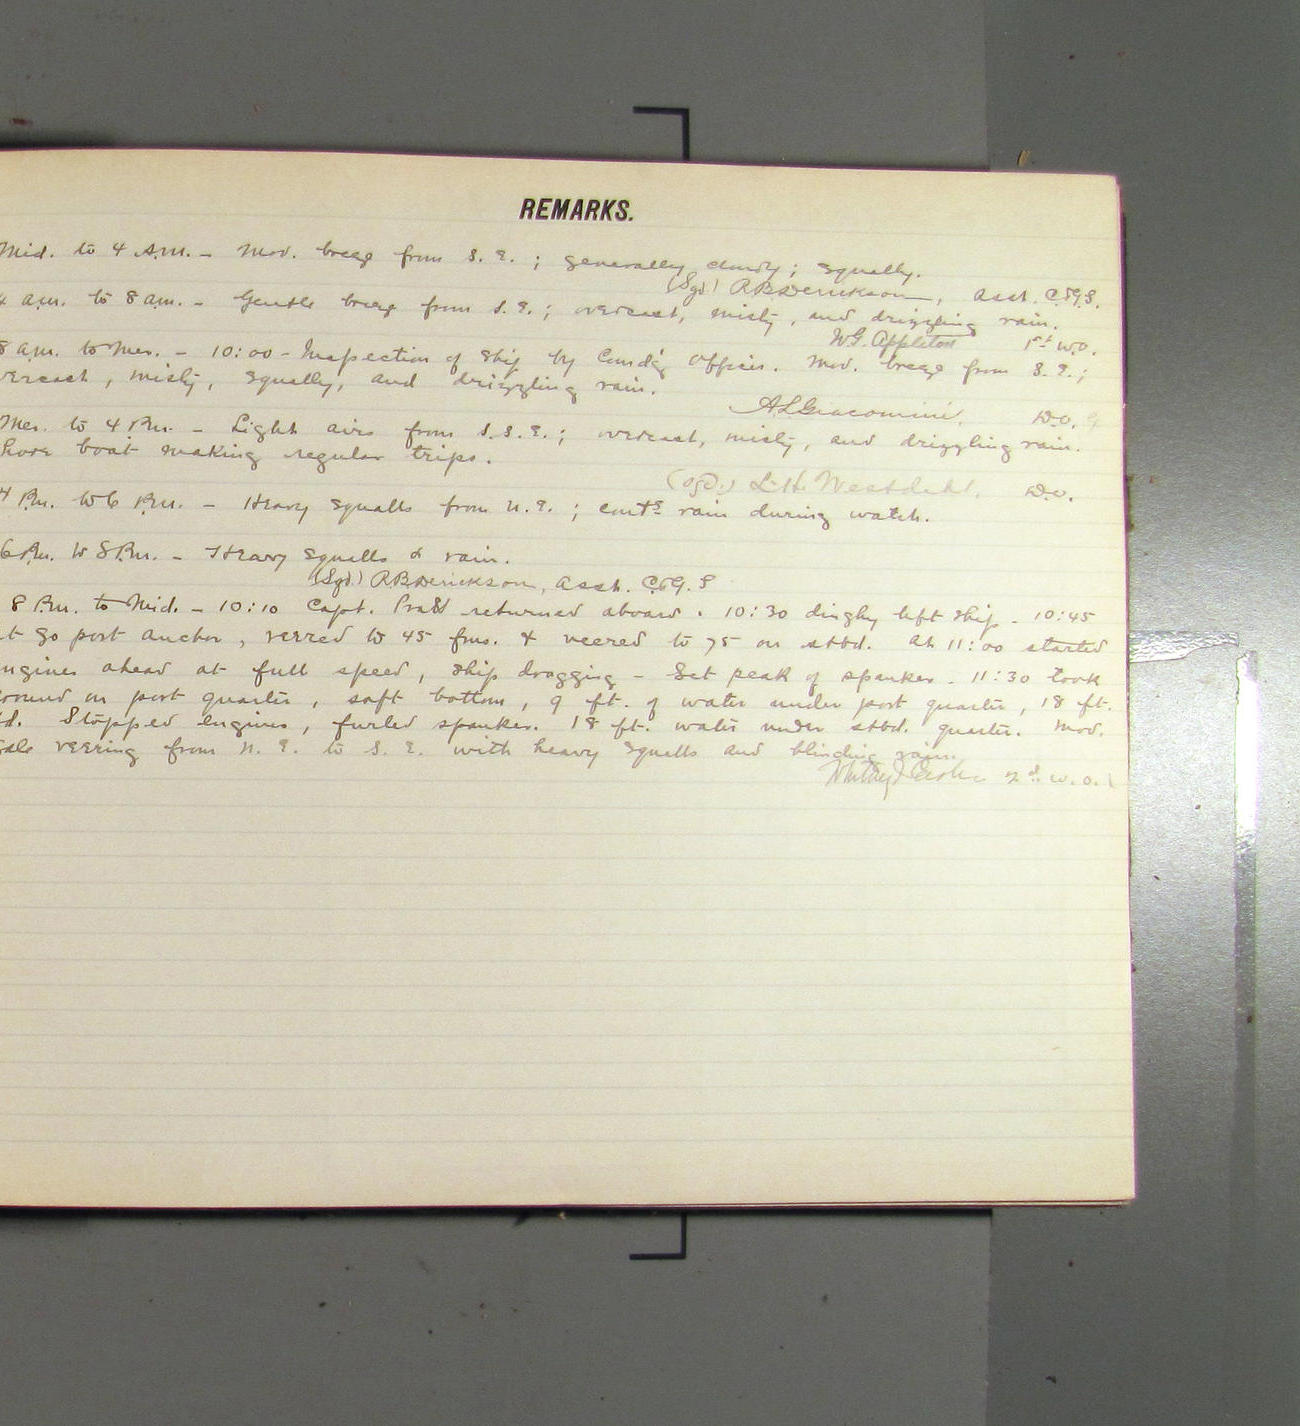 REMARKS.
Mid. to 4 A.M. – Mod. breeze from S. E. ; generally cloudy ; squally.
(Sgd) R.B. Derickson, Asst. C.&G.S.
4 a.m. to 8 a.m. – Gentle breeze from S. E. ; overcast, misty, and drizzling rain.
W.G. Appleton 1st W.O.
8 a.m. to Mer. – 10:00 – Inspection of Ship by Comd'g Officer. Mod. breeze from S. E. ;
vercast, misty, squally, and drizzling rain.
A.L. Giacomini, D.O.
Mer. to 4 P.m. – Light airs from S. S. E. ; overcast, misty, and drizzling rain.
hore boat making regular trips.
(sgd.) L.H. Westdahl, D.O.
4 P.m. to 6 P.m. – Heavy squalls from N. E. ; contg rain during watch.
6 P.m. to 8 P.m. – Heavy squalls & rain.
(Sgd.) R.B. Derickson, Asst. C.&G. S
8 P.m. to Mid. – 10:10 Capt. Pratt returned aboard. 10:30 dinghy left ship – 10:45
et go port anchor, veered to 45 fms. & veered to 75 on stbd. At 11:00 started
ngines ahead at full speed, ship dragging – Set peak of spanker – 11:30 took
round on port quarter, soft bottom, 9 ft. of water under port quarter, 18 ft.
d. Stopped engines, furled spanker. 18 ft. water under stbd. quarter. Mod.
gale veering from N. E. to S. E. with heavy squalls and blinding rain.
2d W.O.